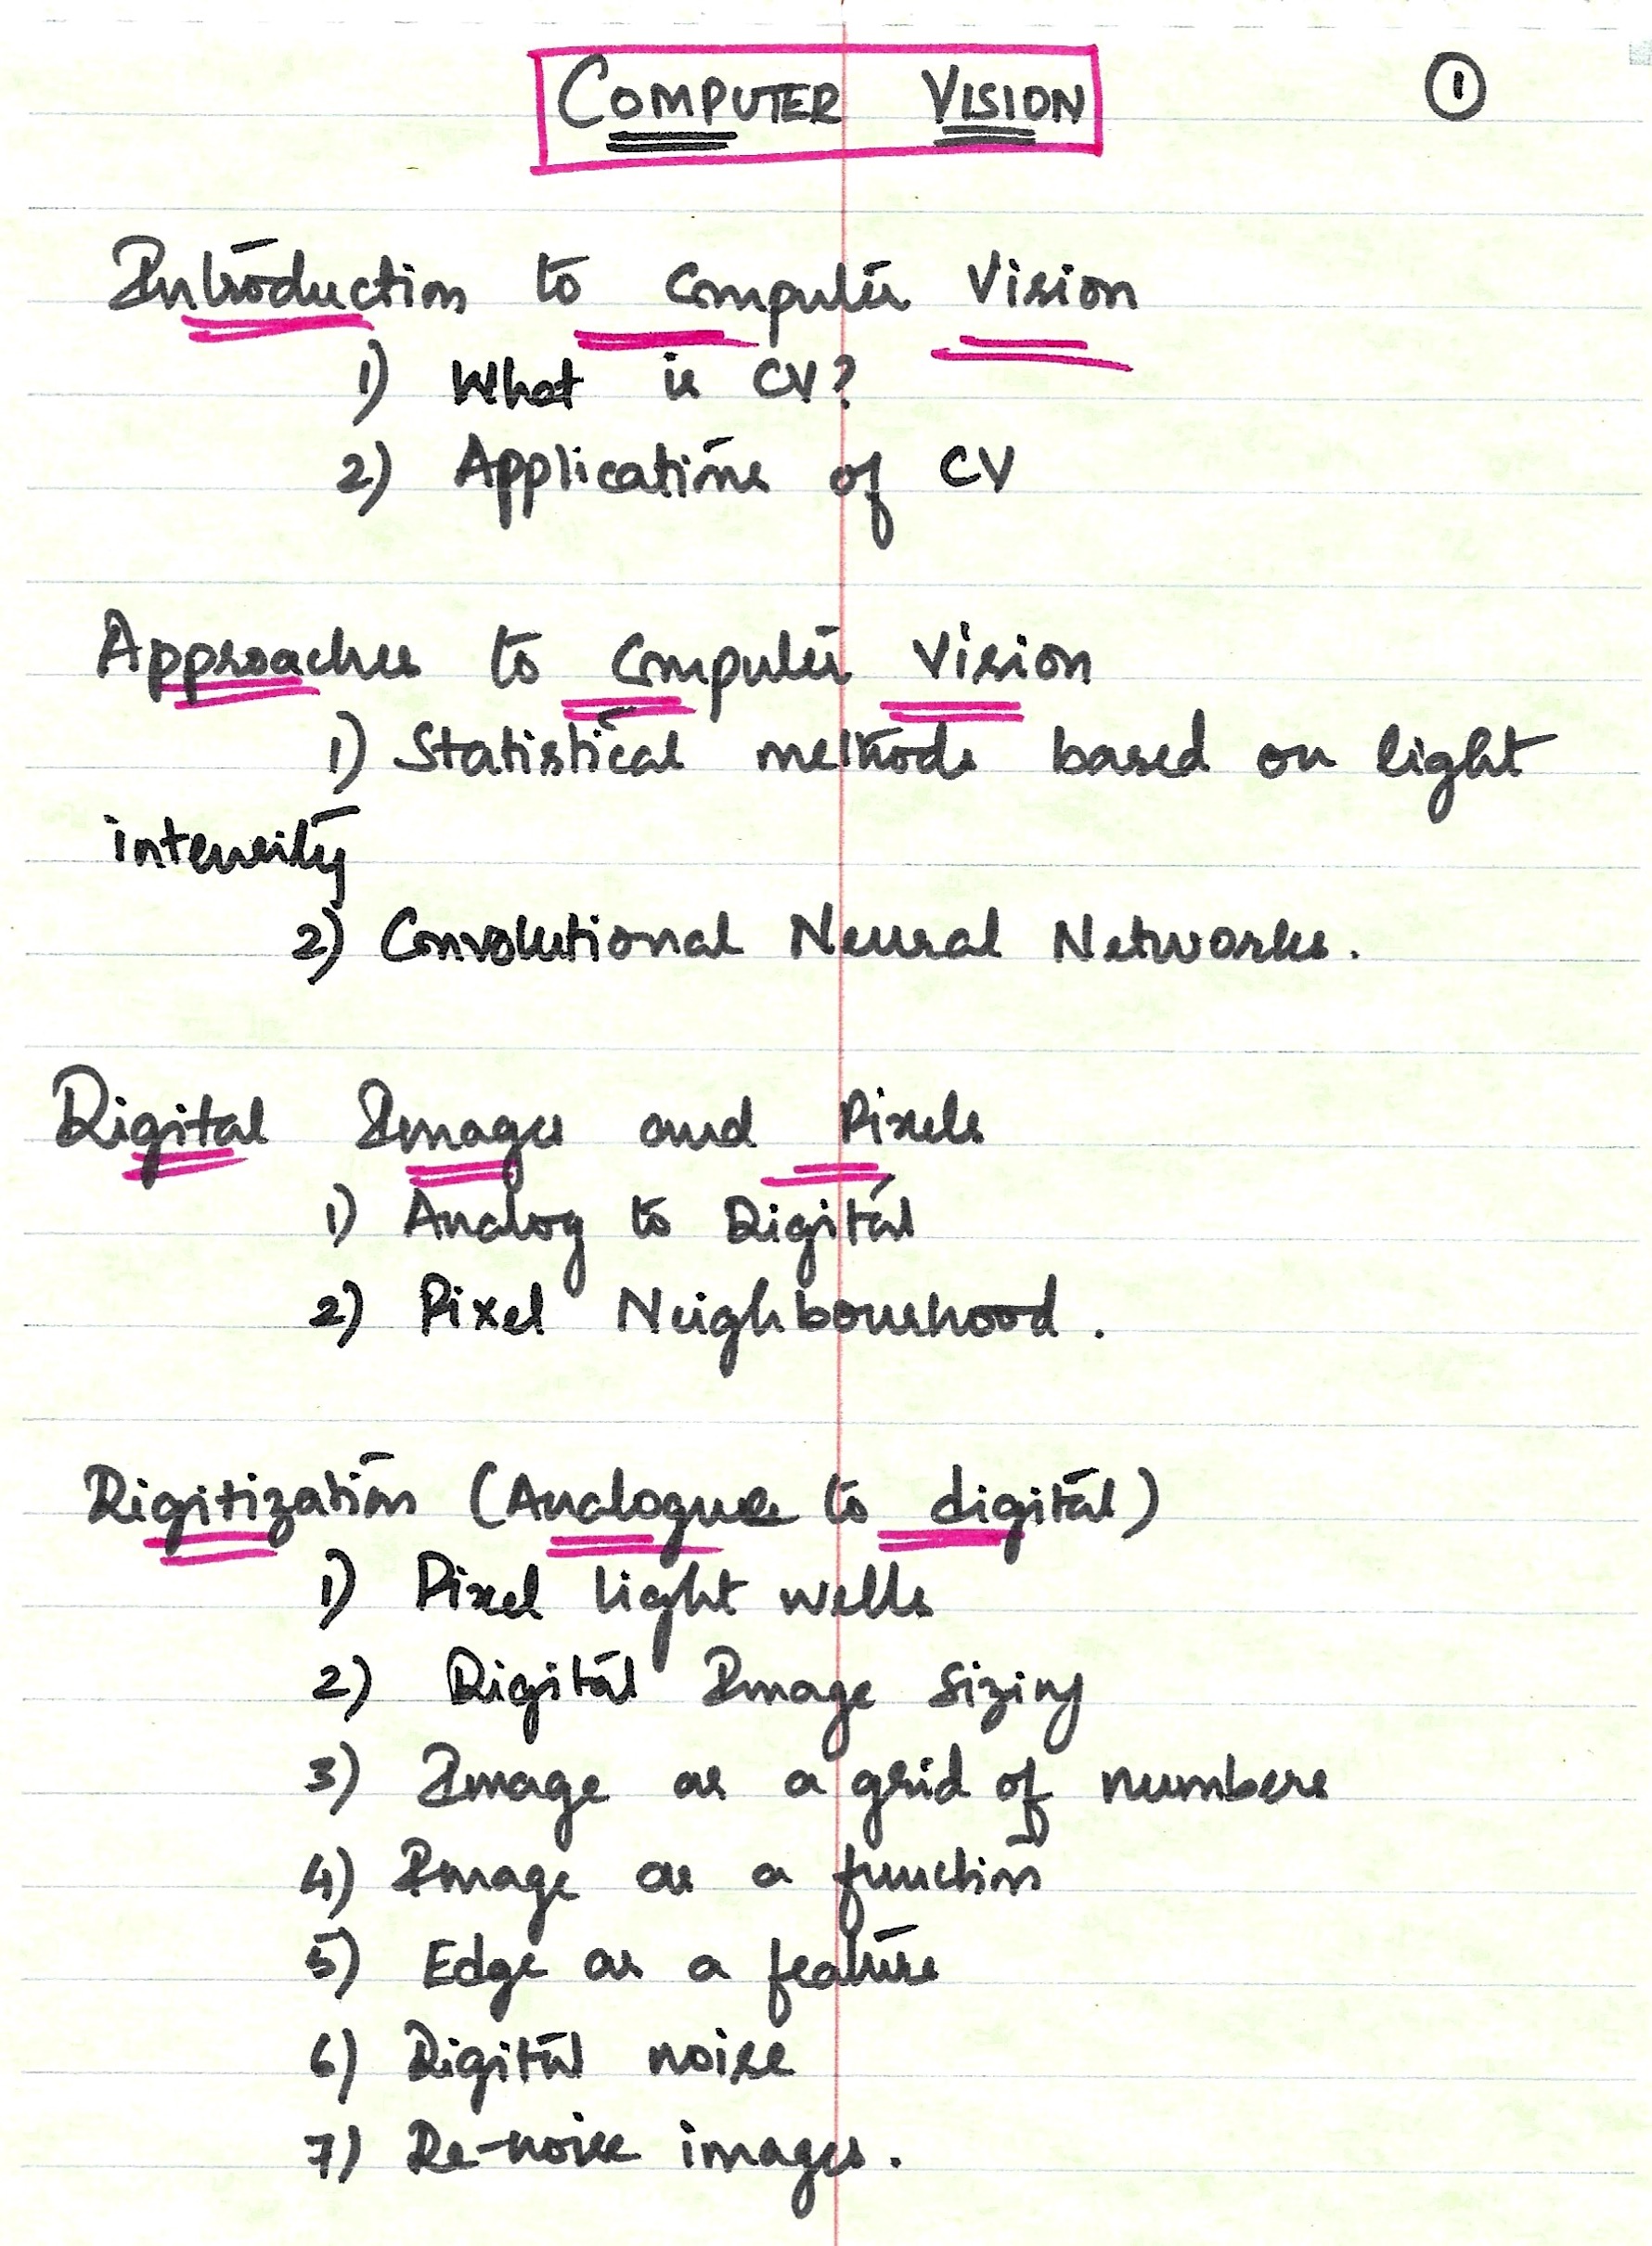 COMPUTER VISION
1
Introduction to Computer Vision
1) What is CV?
2) Applications of CV
Approaches to Computer Vision
1) Statistical methods based on light
intensity
2) Convolutional Neural Networks.
Digital Images and Pixels
1) Analog to Digital
2) Pixel Neighbourhood.
Digitization (Analogue to digital)
1) Pixel light wells
2) Digital Image Sizing
3) Image as a grid of numbers
4) Image as a function
5) Edge as a feature
6) Digital noise
7) De-noise images.